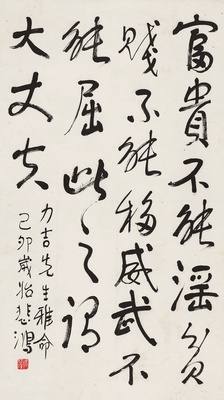 富貴不能淫貧
賤不能移威武不
能屈此之謂
大丈夫
力吉先生雅命
己卯歲始悲鴻